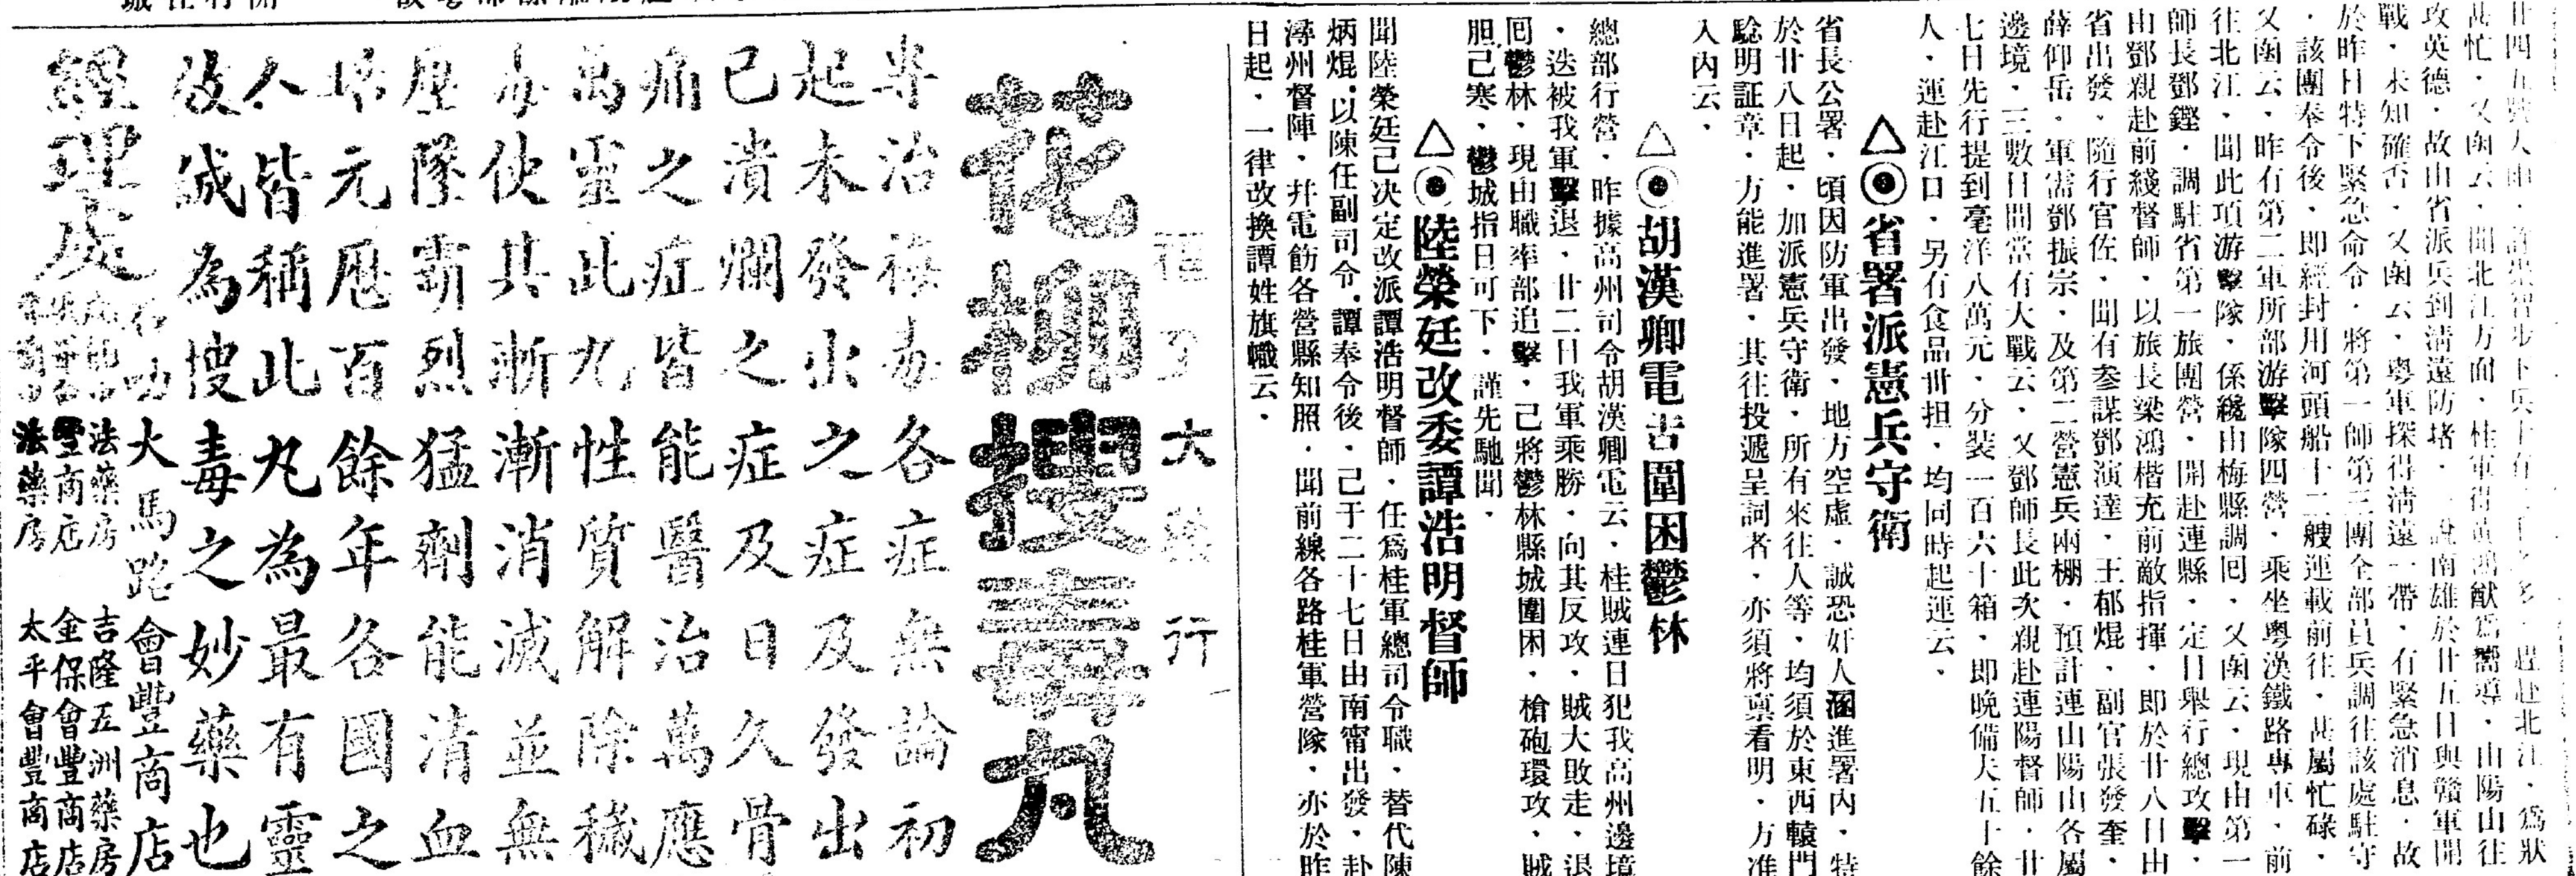 甚忙．又函云．聞北江方面．桂軍得黃鴻猷爲嚮導．由陽山往
攻英德．故由省派兵到淸遠防堵．一說南雄於廿五日與贛軍開
戰．未知確否．又函云．粤軍探得淸遠一帶．有緊急消息．故
於昨日特下緊急命令．將第一師第三團全部員兵調往該處駐守
．該團奉令後．卽經封用河頭船十二艘運載前往．甚屬忙碌．
又函云．昨有第二軍所部游擊隊四營．乘坐粤漢鐵路專車．前
往北江．聞此項游擊隊．係纔由梅縣調回．又函云．現由第一
師長鄧鏗．調駐省第一旅團營．開赴連縣．定日舉行總攻擊．
由鄧親赴前綫督師．以旅長梁鴻楷充前敵指揮．卽於廿八日由
省出發．隨行官佐．聞有參謀鄧演達．王郁焜．副官張發奎．
薛仰岳．軍需鄧振宗．及第二營憲兵兩棚．預計連山陽山各屬
邊境．三數日間當有大戰云．又鄧師長此次親赴連陽督師．廿
七日先行提到毫洋八萬元．分裝一百六十箱．卽晚備夫五十餘
人．運赴江口．另有食品卅担．均同時起運云．
△◉省署派憲兵守衛
省長公署．頃因防軍出發．地方空虛．誠恐奸人溷進署內．特
於廿八日起．加派憲兵守衛．所有來往人等．均須於東西轅門
騐明証章．方能進署．其往投遞呈詞者．亦須將禀看明．方准
入內云．
△◉胡漢卿電告圍困鬱林
總部行營．昨據高州司令胡漢卿電云．桂賊連日犯我高州邊境
．迭被我軍擊退．廿二日我軍乘勝．向其反攻．賊大敗走．退
回鬱林．現由職率部追擊．己將鬱林縣城圍困．槍砲環攻．賊
胆己寒．鬱城指日可下．謹先馳聞．
△◉陸榮廷改委譚浩明督師
聞陸榮廷己决定改派譚浩明督師．任爲桂軍總司令職．替代陳
炳焜．以陳任副司令．譚奉令後．己于二十七日由南甯出發．赴
潯州督陣．幷電飭各營縣知照．聞前線各路桂軍營隊．亦於昨
日起．一律改換譚姓旗幟云．
大 行
花柳搜毒丸
專治梅毒各症無論初
起未發出之症及發出
已潰爛之症及日久骨
痛之症皆能醫治萬應
萬靈此丸性質解除穢
毒使其漸漸消滅並無
壓墜霸烈猛劑能清血
培元歷百餘年各國之
人皆稱此丸為最有靈
效誠為搜毒之妙藥也
經理處
大馬路會豐商店
法藥房 吉隆五洲藥房
商店 金保會豐商店
法藥房 太平會豐商店